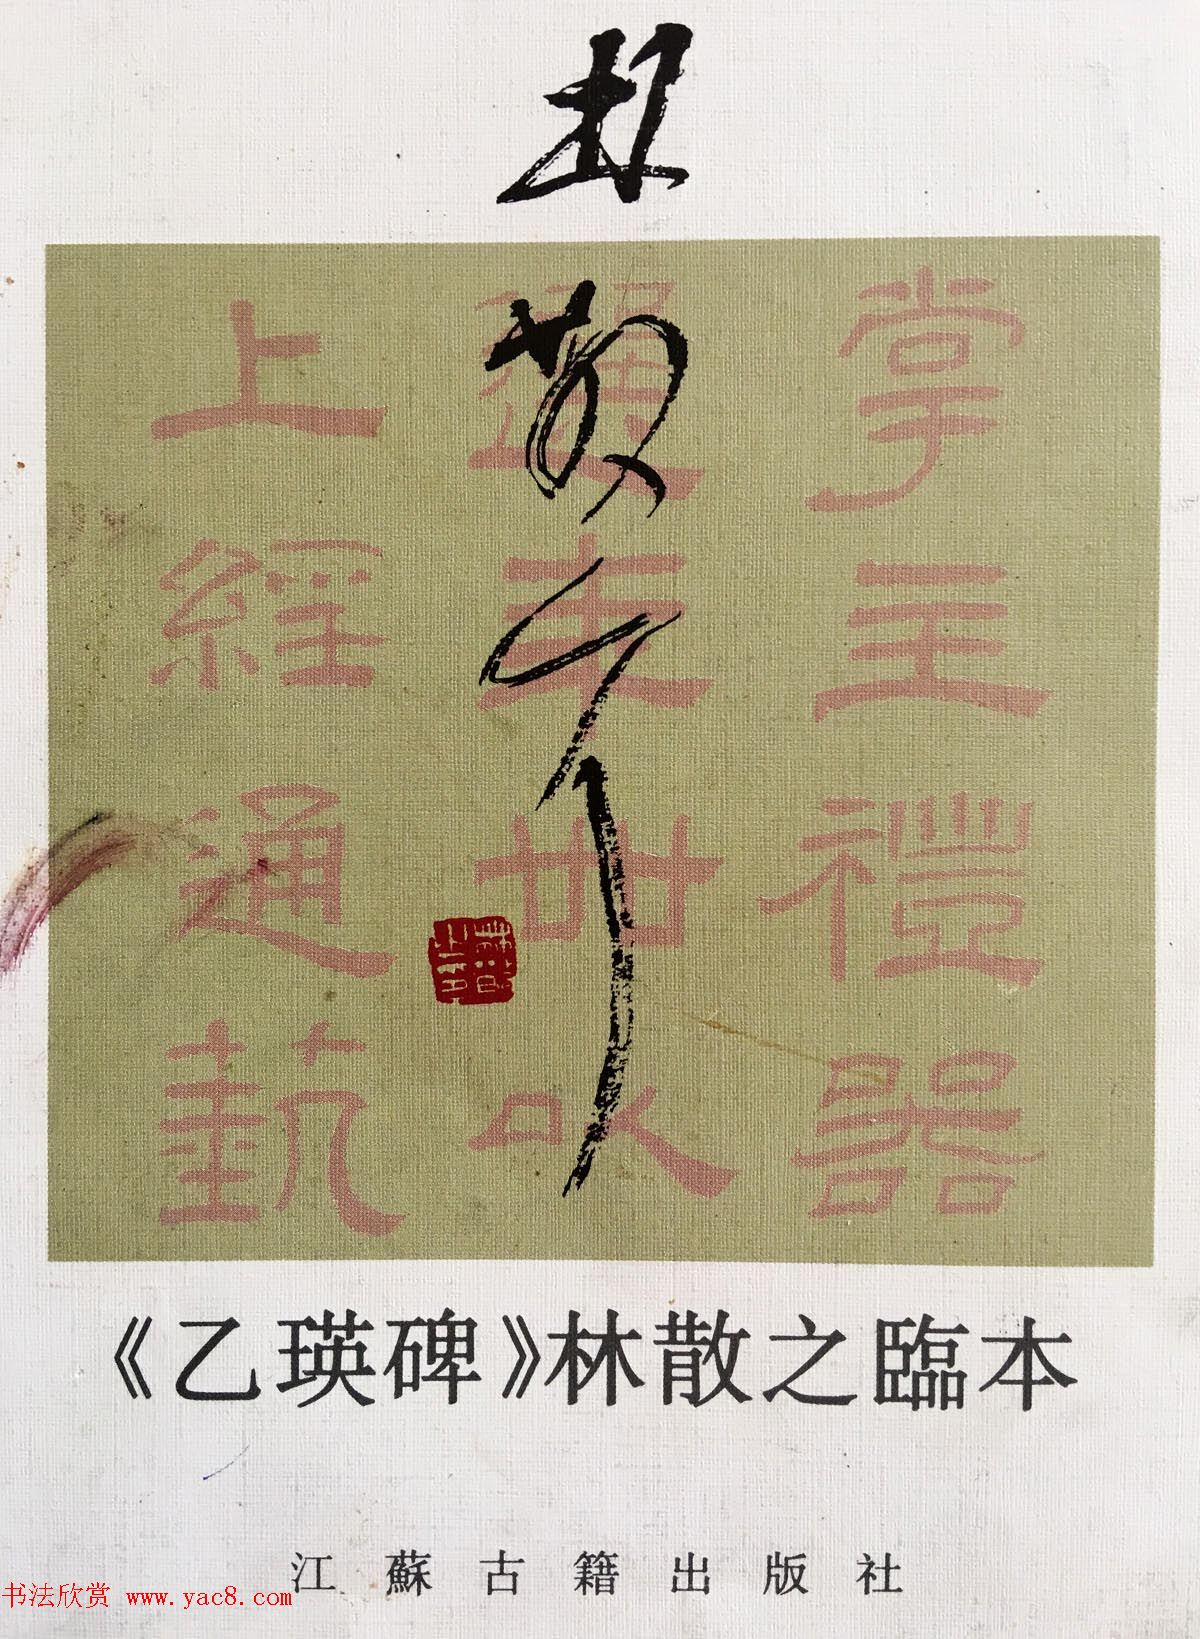 林散耳
掌主禮器
選年卌以
上經通藝
《乙瑛碑》林散之臨本
江蘇古籍出版社
书法欣赏 www.yac8.com